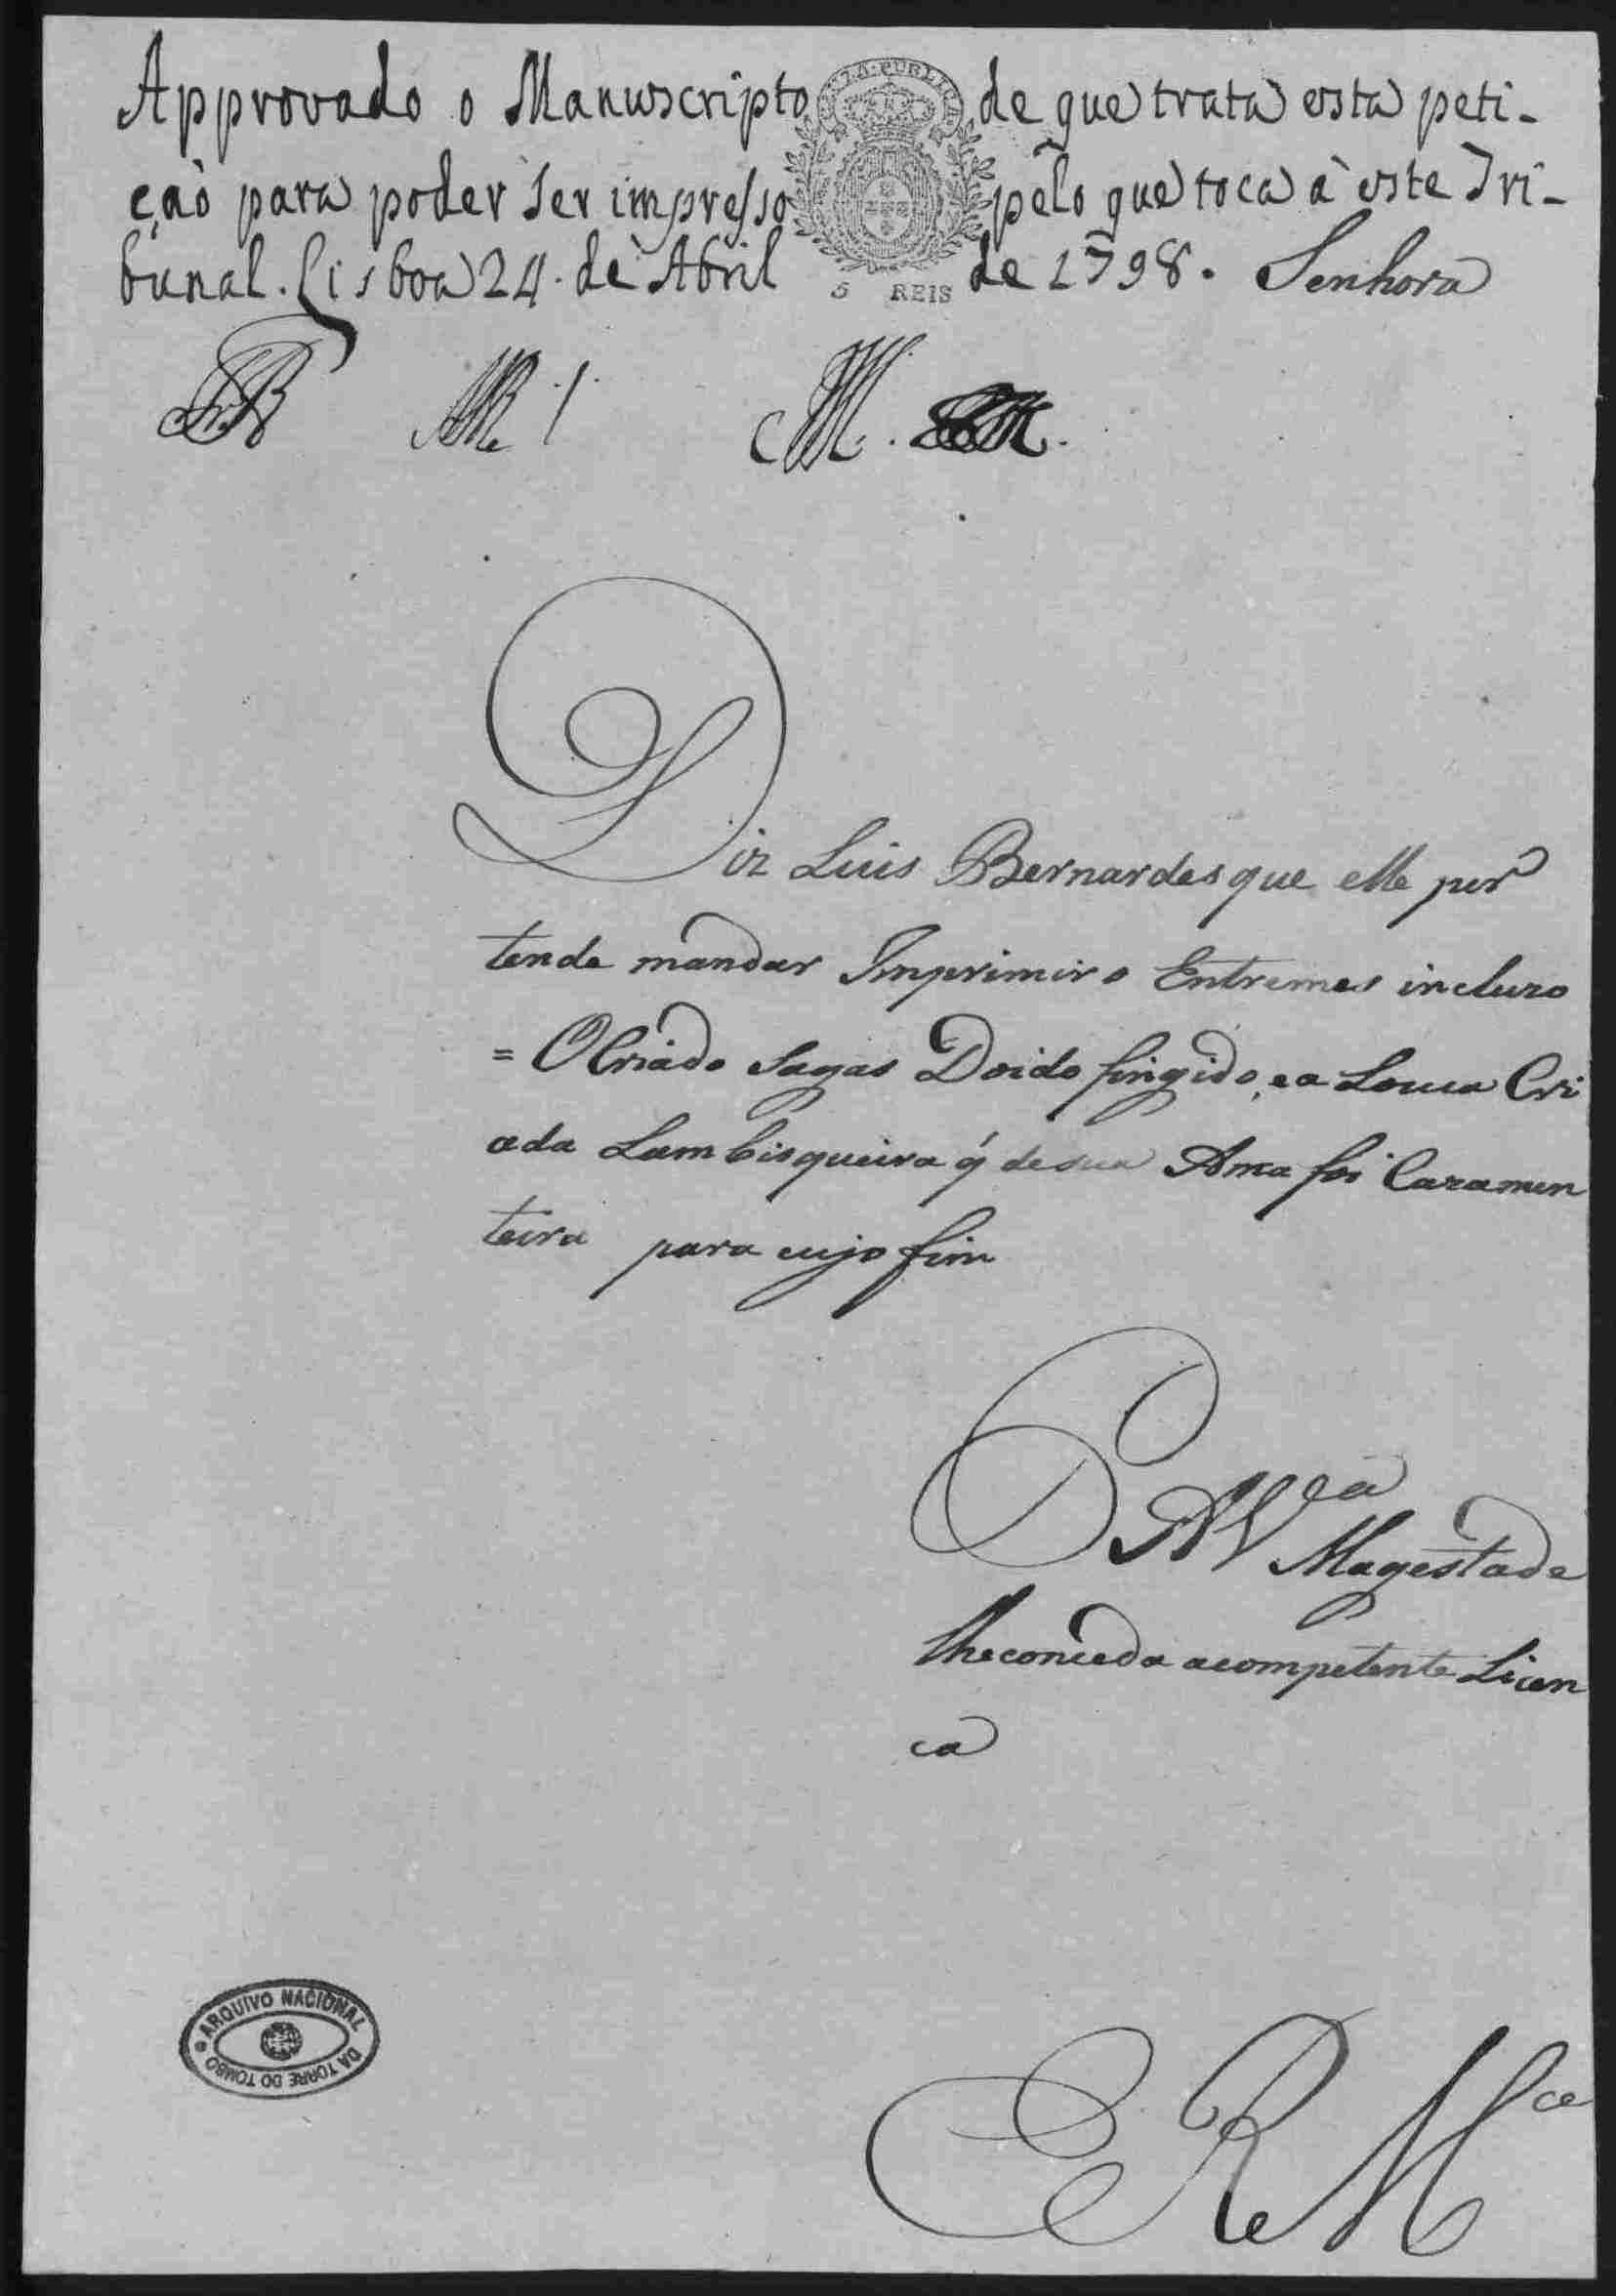 Approvado o Manuscripto de que trata esta peti-
çaõ para poder ser impresso pelo que toca à este Tri-
bunal. Lisboa 24 de Abril de 1798. Senhora
5 REIS
Diz Luis Bernardes que elle per
tende mandar Imprimir o Entremes incluzo
= O Criado Sagas Doido fingido, e a Louca Cri
ada Lambisqueira q̃ de sua Ama foi Cazamen
teira para cujo fim
P A V.ª
Magestade
lhe conceda a competente Licen
ca
ARQUIVO NACIONAL
DA TORRE DO TOMBO
E R M.ce